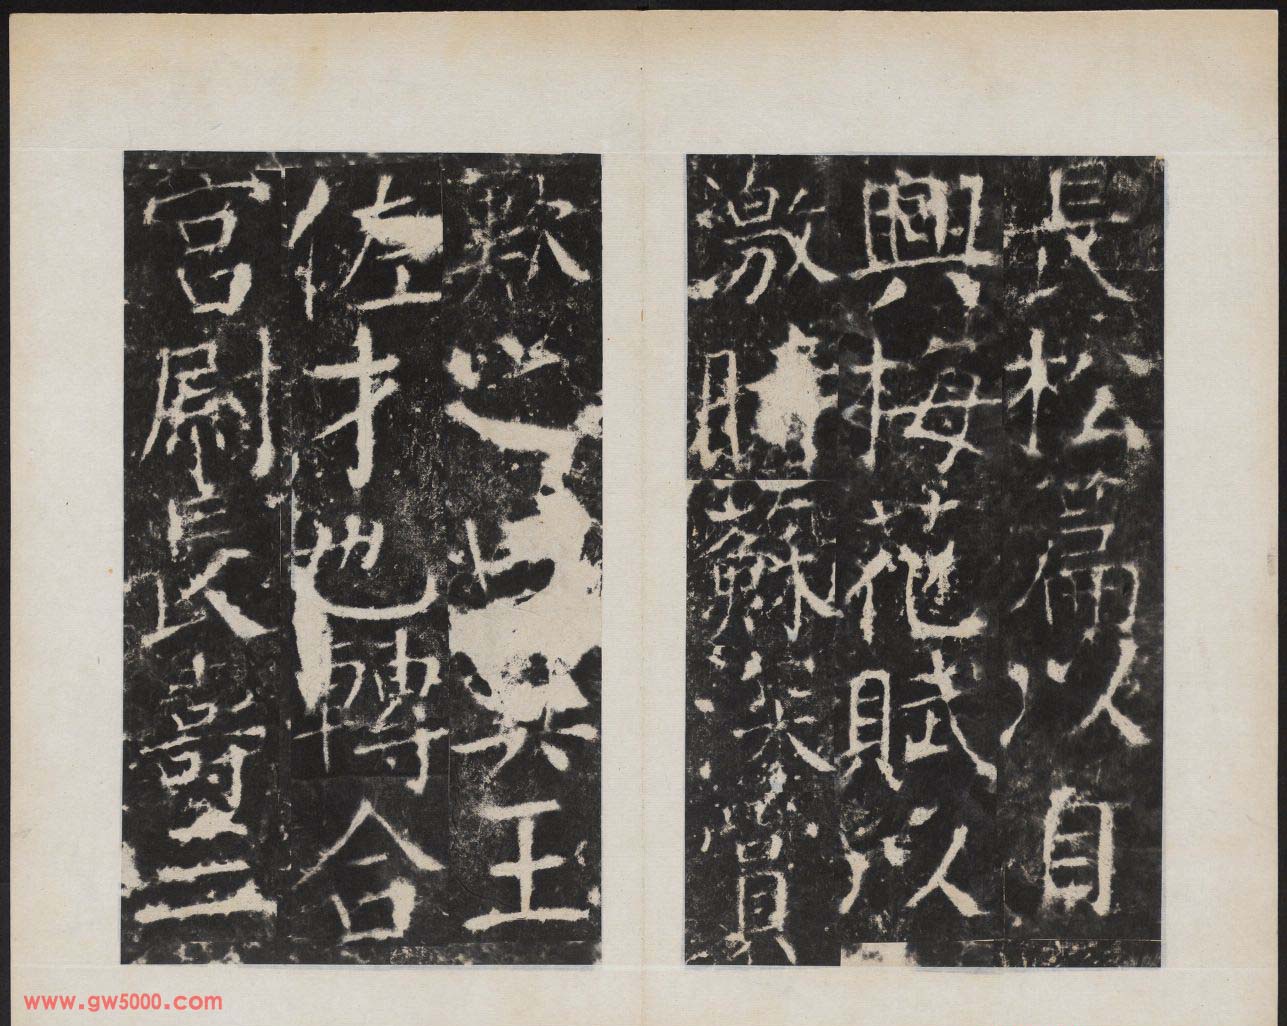 長松篇以自
興梅花賦以
激時蘇深賞
歎之曰真王
佐才也轉合
宮尉長壽三
www.gw5000.com